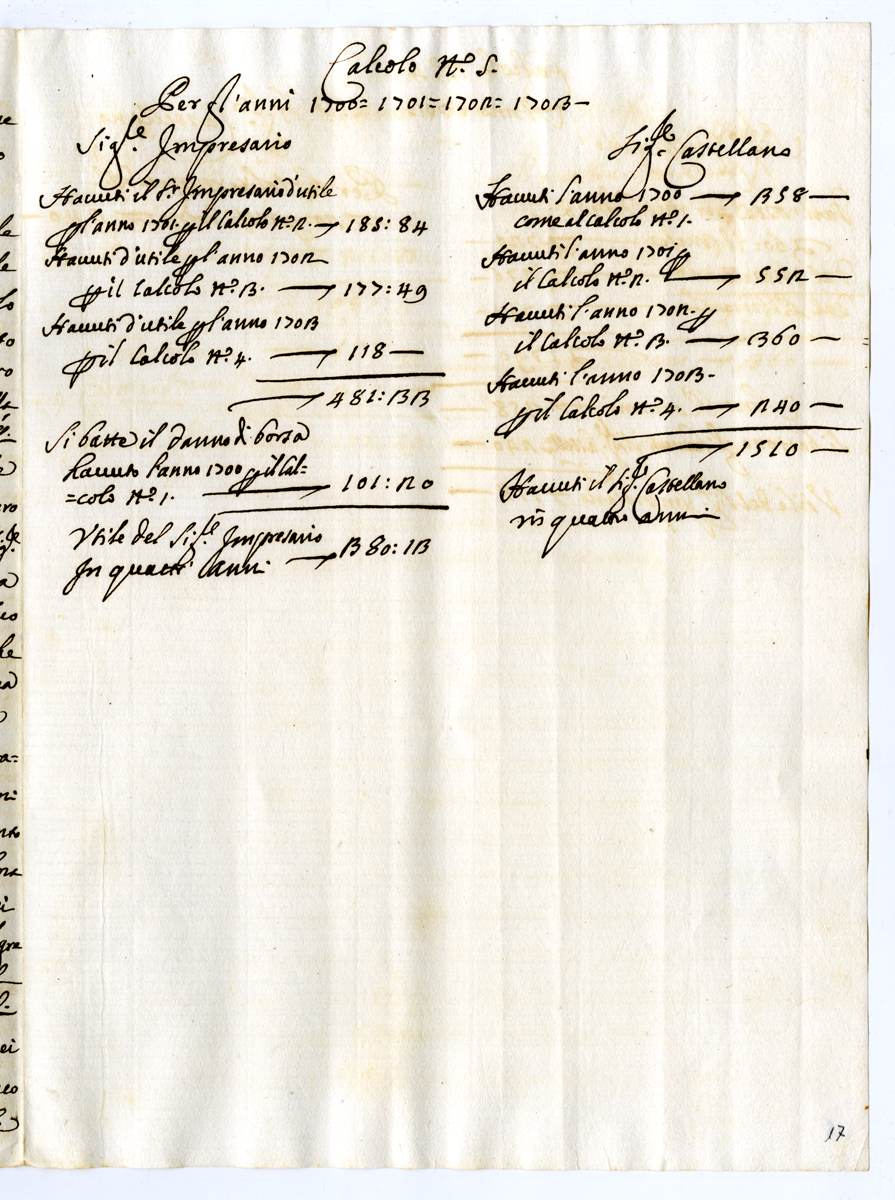 Calcolo N.º 5.
Per gl'anni 1700= 1701= 1702= 1703–
Sig.le Impresario
Havuti il S.r Impresario d'utile
p l'anno 1701. p il Calcolo N.º 2. — 185: 84
Havuti d'utile p l'anno 1702
p il Calcolo N.º 3. — 177: 49
Havuti d'utile p l'anno 1703
p il Calcolo N.º 4. — 118 —
481: 33
Si batte il danno di borsa
havuto l'anno 1700 p il Cal=
=colo N.º 1. — 101: 20
Utile del Sig.le Impresario
In quattr' anni — 380: 13
Sig.le Castellano
Havuti l'anno 1700 — 358 —
come al calcolo N.º 1.
Havuti l'anno 1701 p
il Calcolo N.º 2. — 552 —
Havuti l'anno 1702. p
il Calcolo N.º 3. — 360 —
Havuti l'anno 1703–
p il Calcolo N.º 4. — 240 —
1510 —
Havuti il Sig.le Castellano
in quattro anni
17